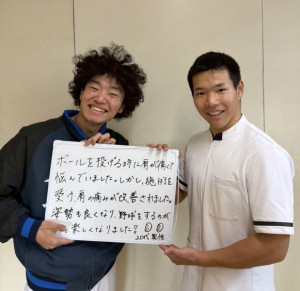 ボールを投げる時に肩が痛くて
悩んでいました。しかし、施術を
受け肩の痛みが改善されました。
姿勢も良くなり、野球をするのが
楽しくなりました!
20代 男性